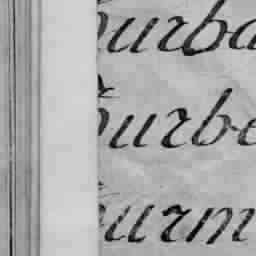 urba
urbe
urm